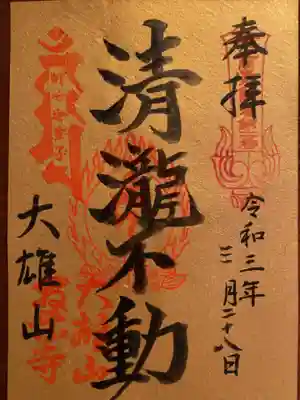 奉拝
令和三年
三月二十八日
清瀧不動
大雄山